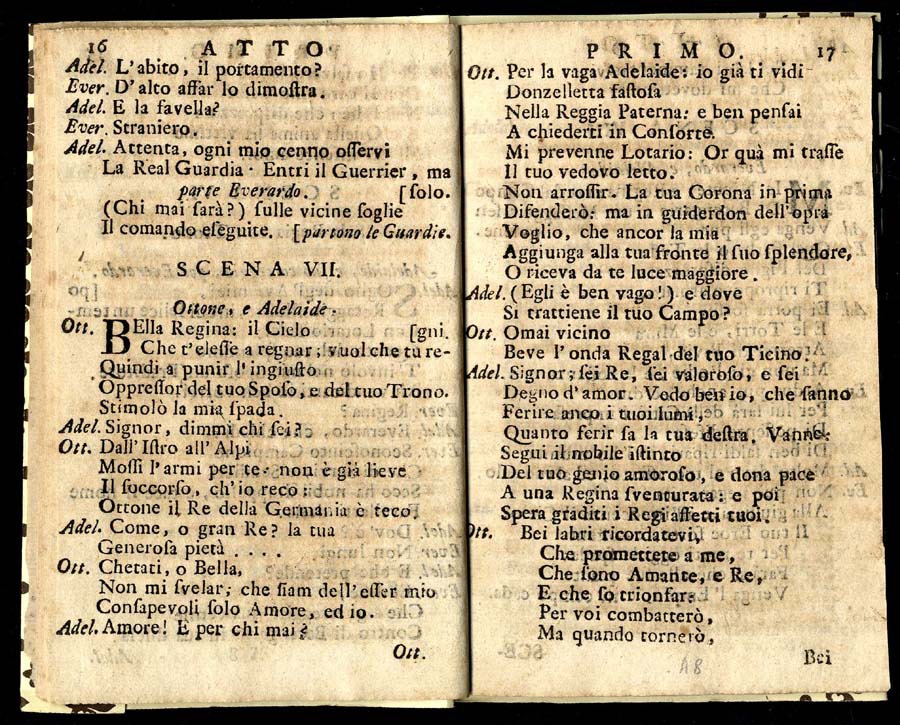 16 ATTO
Adel. L'abito, il portamento?
Ever. D'alto affar lo dimoſtra.
Adel. E la favella?
Ever. Straniero.
Adel. Attenta, ogni mio cenno oſſervi
La Real Guardia. Entri il Guerrier, ma
parte Everardo. [ſolo.
(Chi mai ſarà?) ſulle vicine ſoglie
Il comando eſeguite. [partono le Guardie.
SCENA VII.
Ottone, e Adelaide.
Ott. BElla Regina: il Cielo [gni.
Che t'eleſſe a regnar; vuol che tu re-
Quindi a punir l'ingiuſto
Oppreſſor del tuo Spoſo, e del tuo Trono.
Stimolò la mia ſpada.
Adel. Signor, dimmi chi ſei?
Ott. Dall'Iſtro all'Alpi
Moſſi l'armi per te: non è già lieve
Il ſoccorſo, ch'io reco:
Ottone il Re della Germania è teco.
Adel. Come, o gran Re? la tua
Generoſa pietà . . . .
Ott. Chetati, o Bella,
Non mi ſvelar; che ſiam dell'eſſer mio
Conſapevoli ſolo Amore, ed io.
Adel. Amore! E per chi mai?
Ott.
PRIMO. 17
Ott. Per la vaga Adelaide: io già ti vidi
Donzelletta faſtoſa
Nella Reggia Paterna: e ben penſai
A chiederti in Conſorte.
Mi prevenne Lotario: Or quà mi traſſe
Il tuo vedovo letto.
Non arroſſir. La tua Corona in prima
Difenderò: ma in guiderdon dell'opra
Voglio, che ancor la mia
Aggiunga alla tua fronte il ſuo ſplendore,
O riceva da te luce maggiore.
Adel. (Egli è ben vago!) e dove
Si trattiene il tuo Campo?
Ott. Omai vicino
Beve l'onda Regal del tuo Ticino.
Adel. Signor; ſei Re, ſei valoroſo, e ſei
Degno d'amor. Vedo ben io, che ſanno
Ferire anco i tuoi lumi,
Quanto ferir ſa la tua deſtra. Vanne:
Segui il nobile iſtinto
Del tuo genio amoroſo, e dona pace
A una Regina ſventurata: e poi
Spera graditi i Regi affetti tuoi.
Ott. Bei labri ricordatevi,
Che promettete a me,
Che ſono Amante, e Re,
E che ſo trionfar:
Per voi combatterò,
Ma quando tornerò,
Bei
A8